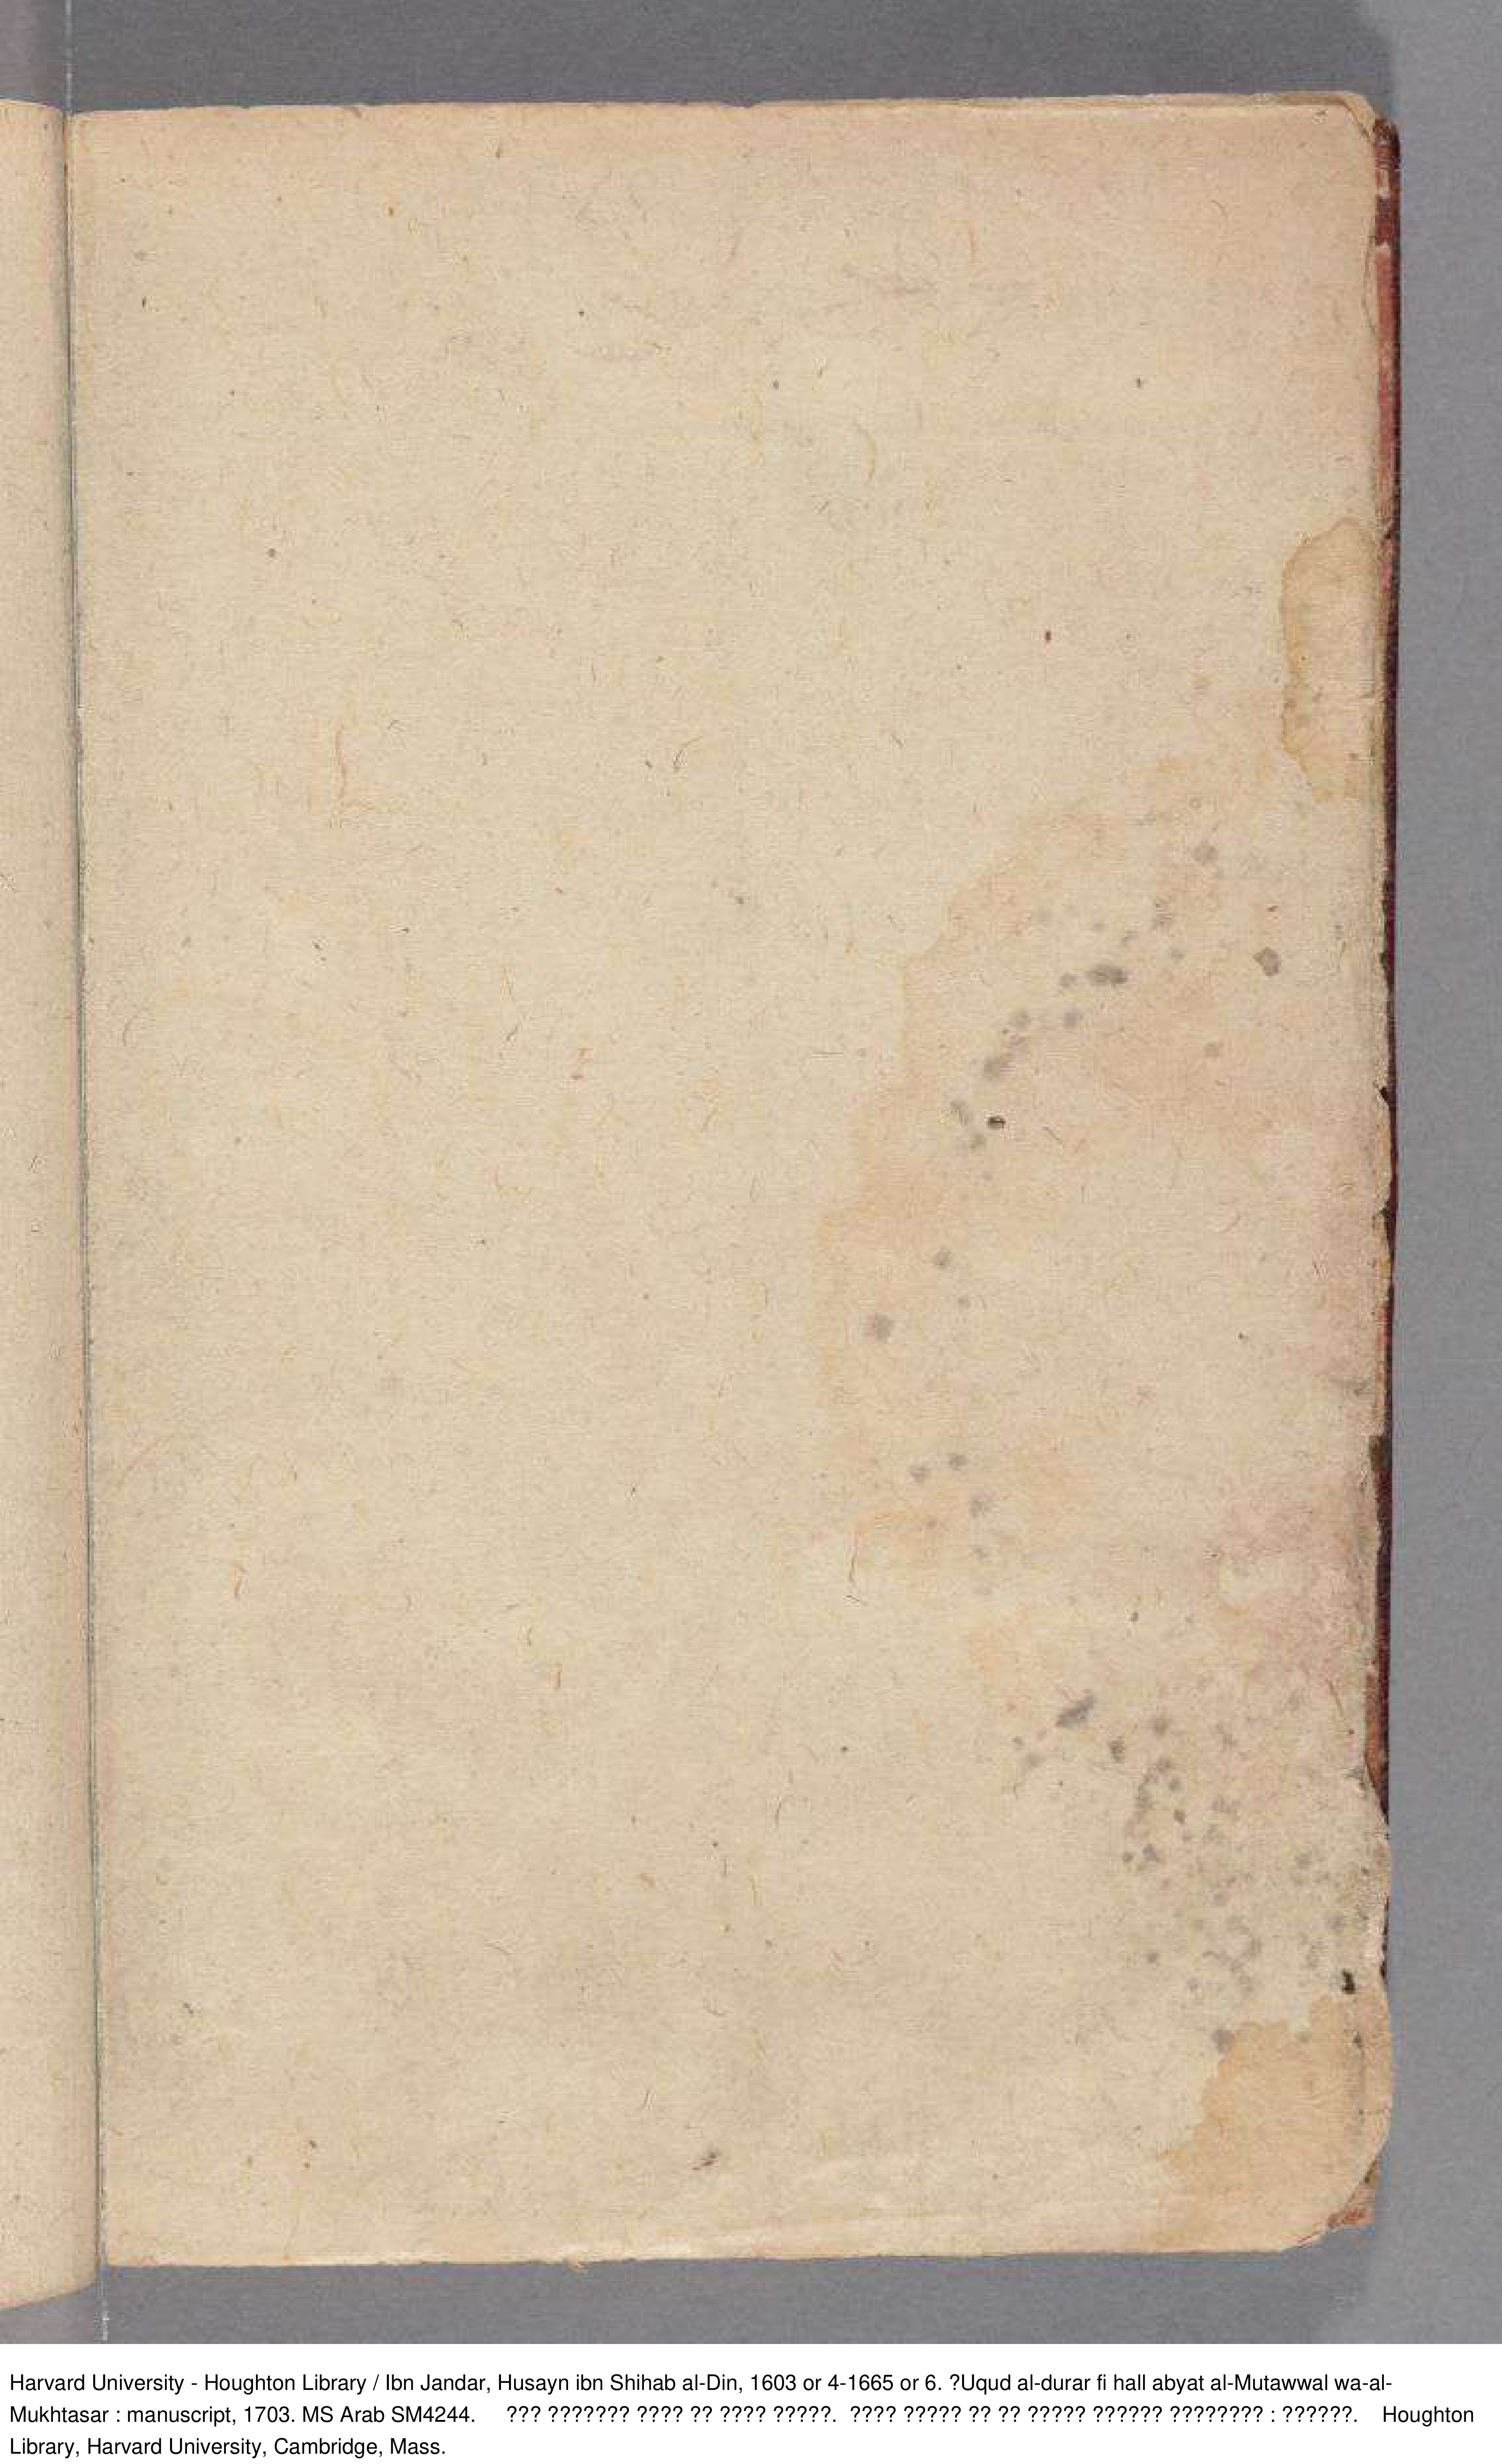 Harvard University - Houghton Library / Ibn Jandar, Husayn ibn Shihab al-Din, 1603 or 4-1665 or 6. ?Uqud al-durar fi hall abyat al-Mutawwal wa-al-
Mukhtasar : manuscript, 1703. MS Arab SM4244. ??? ??????? ???? ?? ???? ?????. ???? ????? ?? ?? ????? ?????? ???????? : ??????. Houghton
Library, Harvard University, Cambridge, Mass.